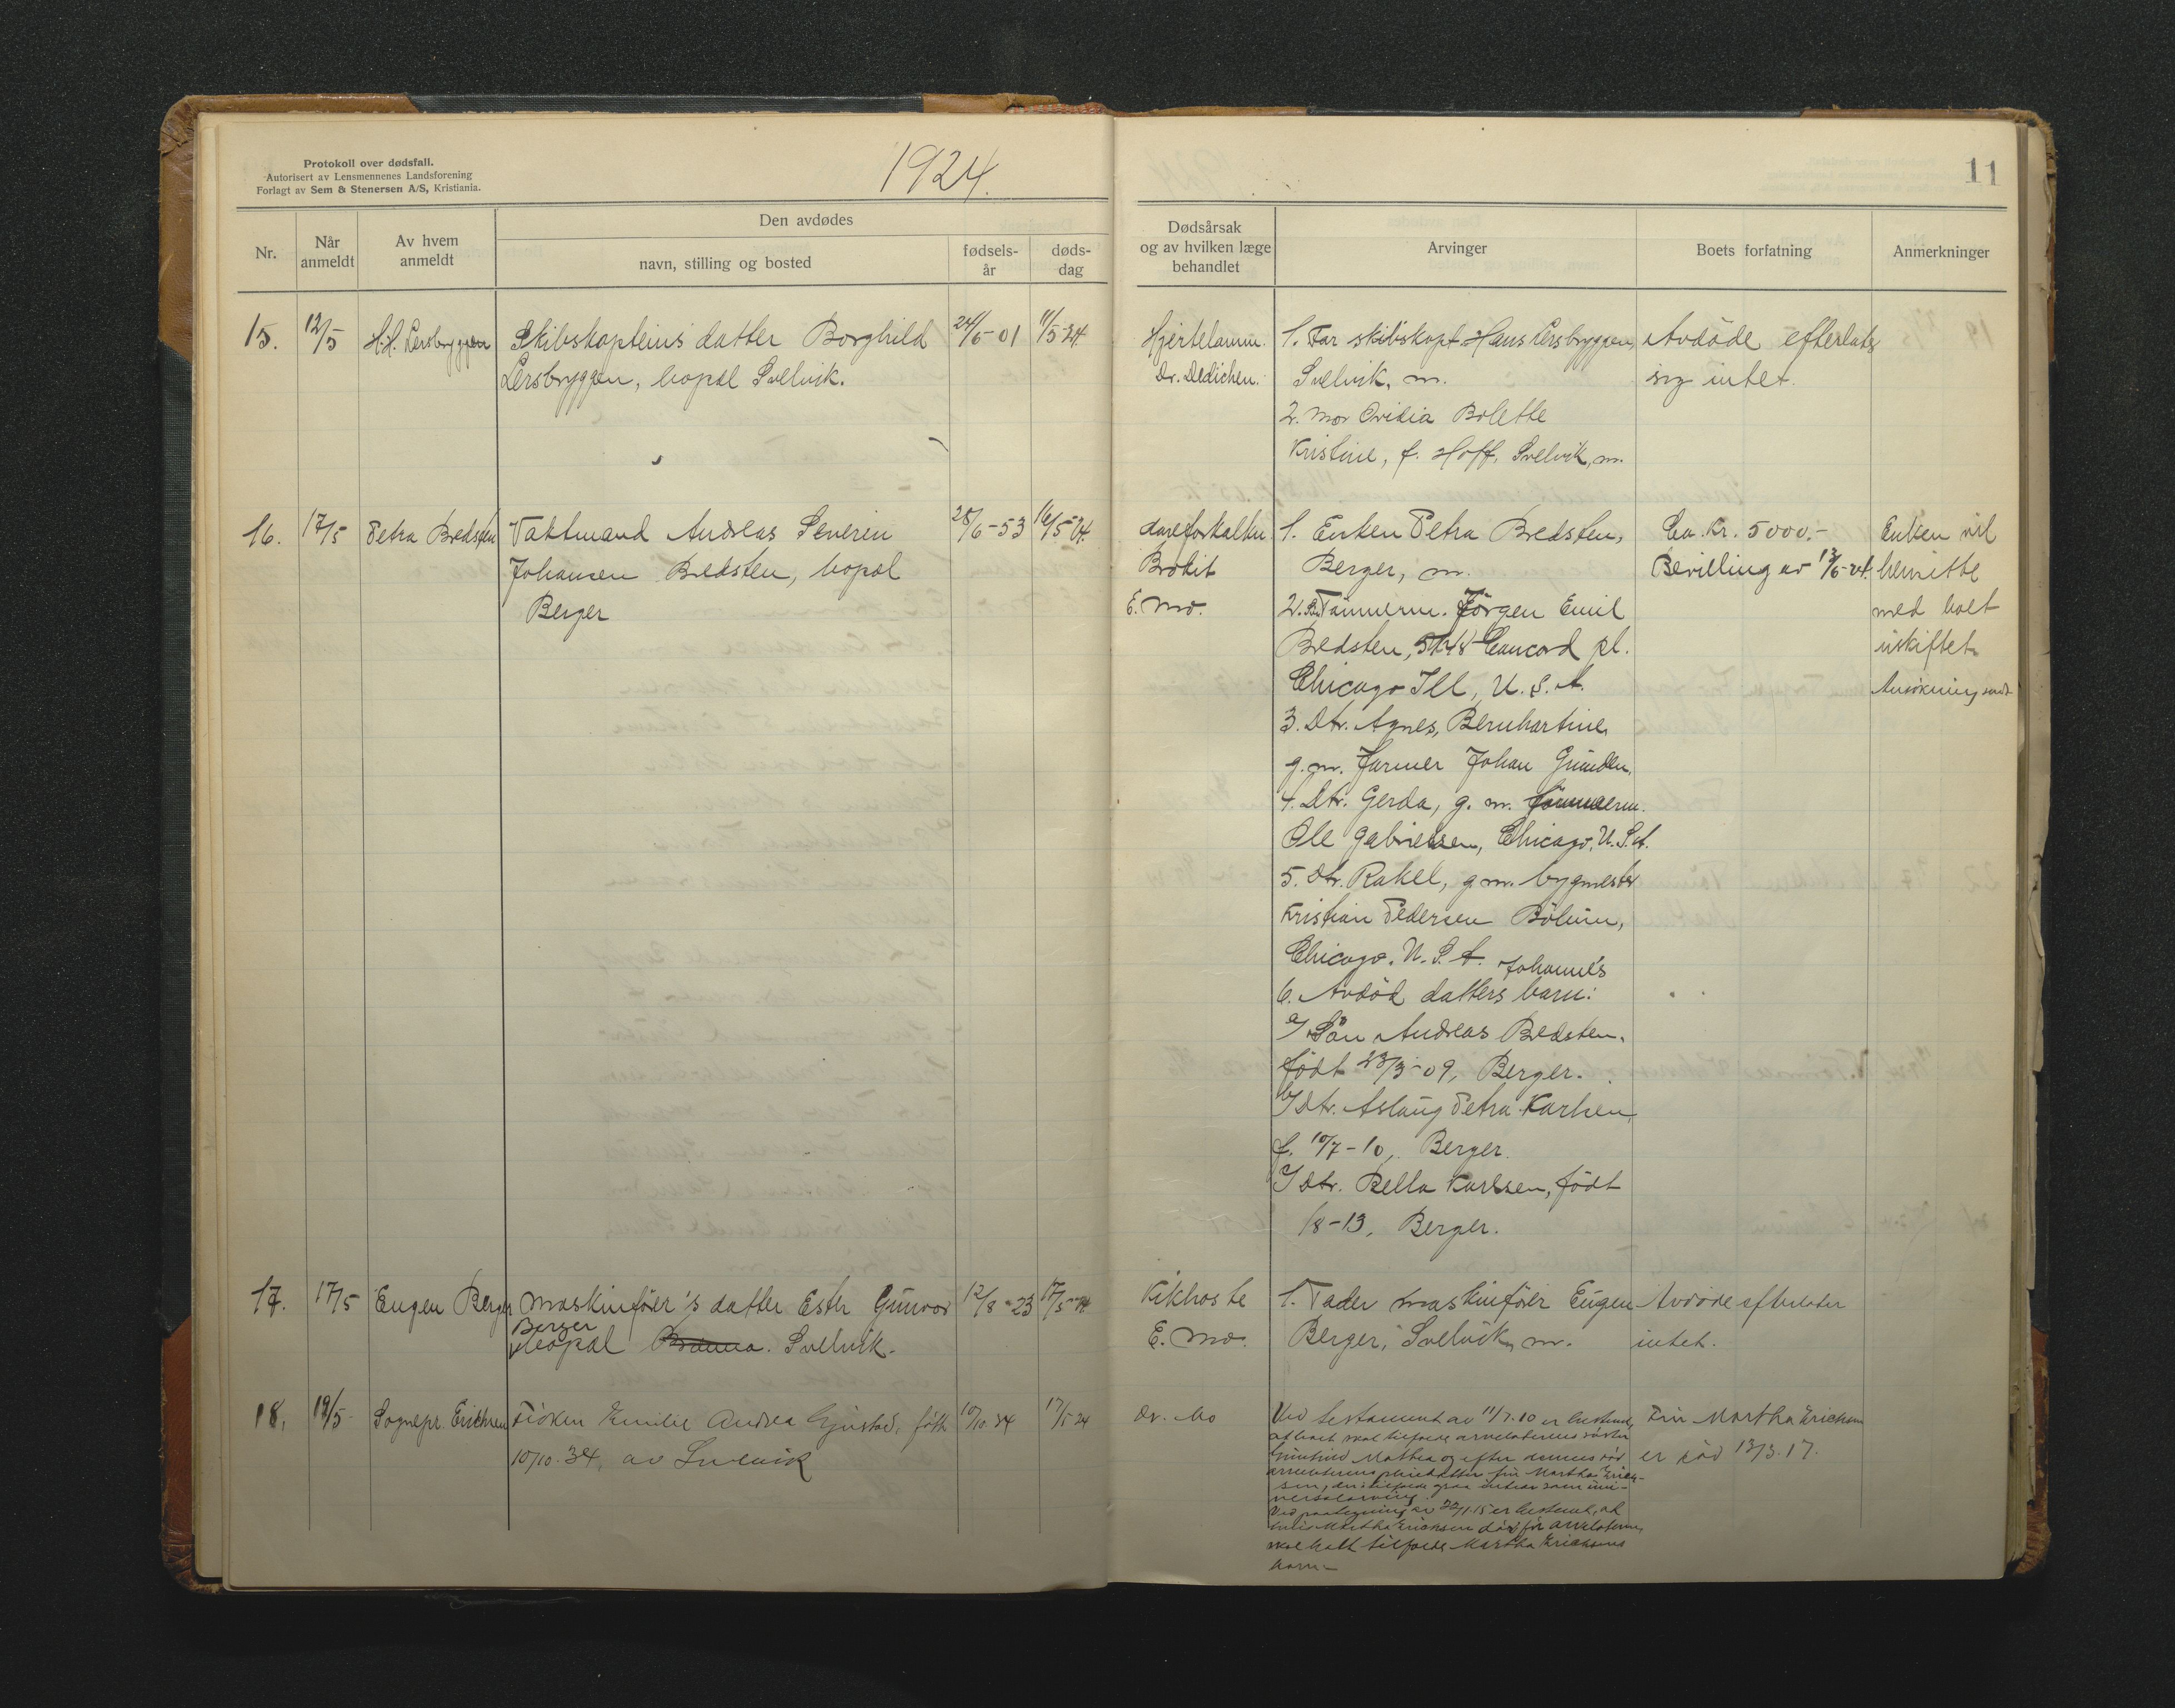 Protokoll over dødsfall.
Autorisert av Lensmennenes Landsforening
Forlagt av Sem & Stenersen A/S, Kristiania.
1924.
Nr.
Når anmeldt
Av hvem anmeldt
Den avdødes
navn, stilling og bosted
fødsels-år
døds-dag
15. 12/5 H.H. Lersbryggen Skibskapteins datter Borghild 24/6-01 11/5-24
Lersbryggen, bopæl Svelvik.
16. 17/5 Petra Bredsten Vaktmand Andreas Severin 28/6-53 16/5-24
Johansen Bredsten, bopæl
Berger
17. 17/5 Eugen Berger Maskinfører's datter Esth Gunvor 12/8-23 17/5-24
Berger
bopæl Svelvik.
18. 19/5 Sognepr. Erichsen Frøken Emilie Andrea født 10/10 34 17/5 24
10/10. 34, av Svelvik
11
Dødsårsak
og av hvilken læge
behandlet
Arvinger
Boets forfatning
Anmerkninger
Hjertelamm. 1. Far skibskapt. Hans Lersbryggen, Avdøde efterlater
Dr. Dedichen. Svelvik, m. sig intet.
2. Mor Ovidia Bolette
Kristine, f. Hoff, Svelvik, m.
Aareforkalkn. 1. Enken Petra Bredsten, Ca. kr. 5000.- Enken vil
Brokit Berger, m. Bevilling av 13/6-24. hensitte
E. Mo. 2. Tømmerm. Jörgen Emil med boet
Bredsten, Concord pl. uskiftet.
Chicago Ill, U.S.A. Ansökning sendt
3. Dtr. Agnes, Bernhartine,
g.m. farmer Johan
4. Dtr. Gerda, g. m. tömmerm.
Ole Gabrielsen, Chicago, U.S.A.
5. Dtr. Rakel, g.m. bygmester
Kristian Pedersen
Chicago. U.S.A.
Johanne's
6. Avdöd datters barn:
a/ Sön Andreas Bredsten.
født 23/3-09, Berger.
b/ Dtr. Aslaug Petra Karlsen,
f. 10/7-10, Berger.
c/ dtr. Bella Karlsen, födt
1/8-13, Berger.
Kikhoste 1. Fader maskinförer Eugen Avdöde efterlater
E. Mo. Berger, Svelvik, m. intet.
Dr. Mo Ved testament av 11/7.10 er bestemt, Fru Martha Erichsen
at boet skal tilfalde arveladerens søster
Mathea og efter dennes död er död 13/3.17.
arveladerens pleiedatter fru Martha Erich-
sen, der
versalarving.
Ved paategning av 22/1.15 er bestemt, at
hvis Martha Erichsen dör för arveladeren,
skal boet tilfalde Martha Erichsens
barn -